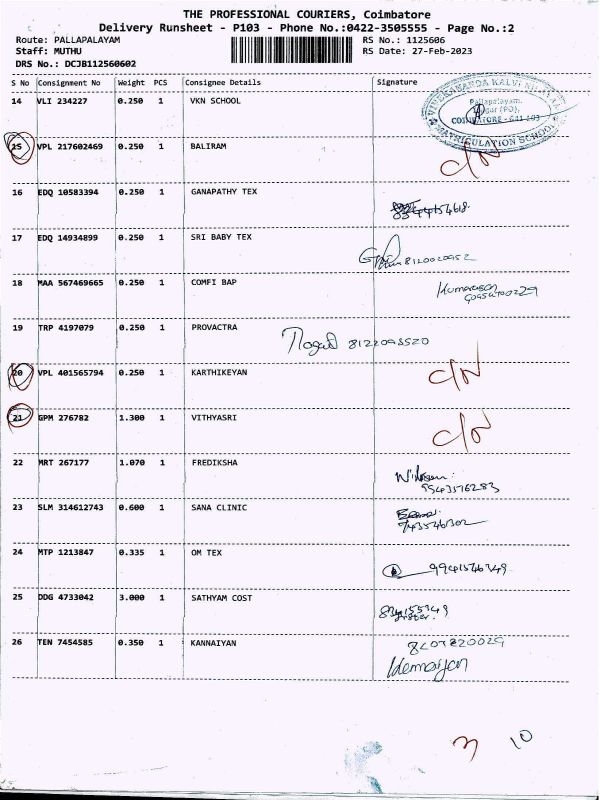 THE PROFESSIONAL COURIERS, Coimbatore
Delivery Runsheet - P103 - Phone No.:0422-3505555 - Page No.:2
Route: PALLAPALAYAM RS No.: 1125606
Staff: MUTHU RS Date: 27-Feb-2023
DRS No.: DCJB112560602
S No Consignment No Weight PCS Consignee Details Signature
14 VLI 234227 0.250 1 VKN SCHOOL
VIVEKANANDA KALVI NILAYAM
Pallapalayam,
COIMBATORE - 641 103
MATRICULATION SCHOOL
15 VPL 217602469 0.250 1 BALIRAM C/N
16 EDQ 10583394 0.250 1 GANAPATHY TEX
17 EDQ 14934899 0.250 1 SRI BABY TEX
8120020952
18 MAA 567469665 0.250 1 COMFI BAP
19 TRP 4197079 0.250 1 PROVACTRA
20 VPL 401565794 0.250 1 KARTHIKEYAN C/N
21 GPM 276782 1.300 1 VITHYASRI C/N
22 MRT 267177 1.070 1 FREDIKSHA
9943576283
23 SLM 314612743 0.600 1 SANA CLINIC
24 MTP 1213847 0.335 1 OM TEX
25 DDG 4733042 3.000 1 SATHYAM COST
26 TEN 7454585 0.350 1 KANNAIYAN
3 10